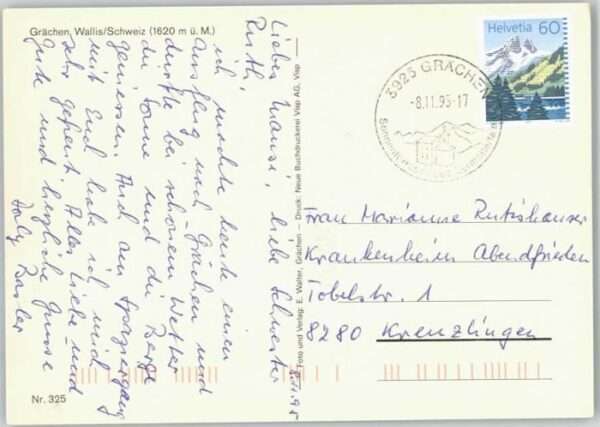 Grächen, Wallis/Schweiz (1620 m ü. M.)
Liebes Mausi, liebe Schwester
Ruth,
ich machte heute einen
Ausflug nach Grächen und
durfte bei schönem Wetter
die Sonne und die Berge
geniessen. Auch am Spaziergang
mit Euch habe ich mich
sehr gefreut. Alles Liebe und
Gute und herzliche Grüsse
Basler
8.11.95
Foto und Verlag: E. Walter, Grächen – Druck: Neue Buchdruckerei Visp AG, Visp
Nr. 325
Helvetia 60
3925 GRÄCHEN
-8.11.95-17
Frau Marianne Rutishauser
Krankenheim Abendfrieden
Tobelstr. 1
8280 Kreuzlingen